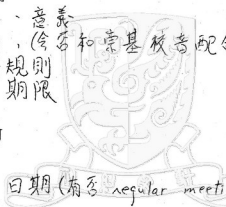 、意義
、(今否和崇基校音配合
規則
期限
日期(有否 regular meeti